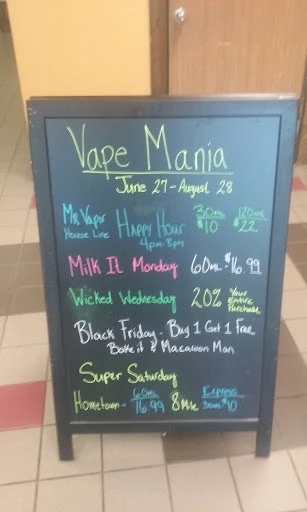 Vape Mania
June 27 - August 28
Mr. Vapor Happy Hour 30mL 120mL
House Line 4pm-8pm $10 $22
Milk It Monday 60mL - $16.99
Wicked Wednesday 20% Your Entire Purchase
Black Friday - Buy 1 Get 1 Free
Bake it & Macaroon Man
Super Saturday
Hometown - 60mL 16.99 8 Mile Express 30mL $10